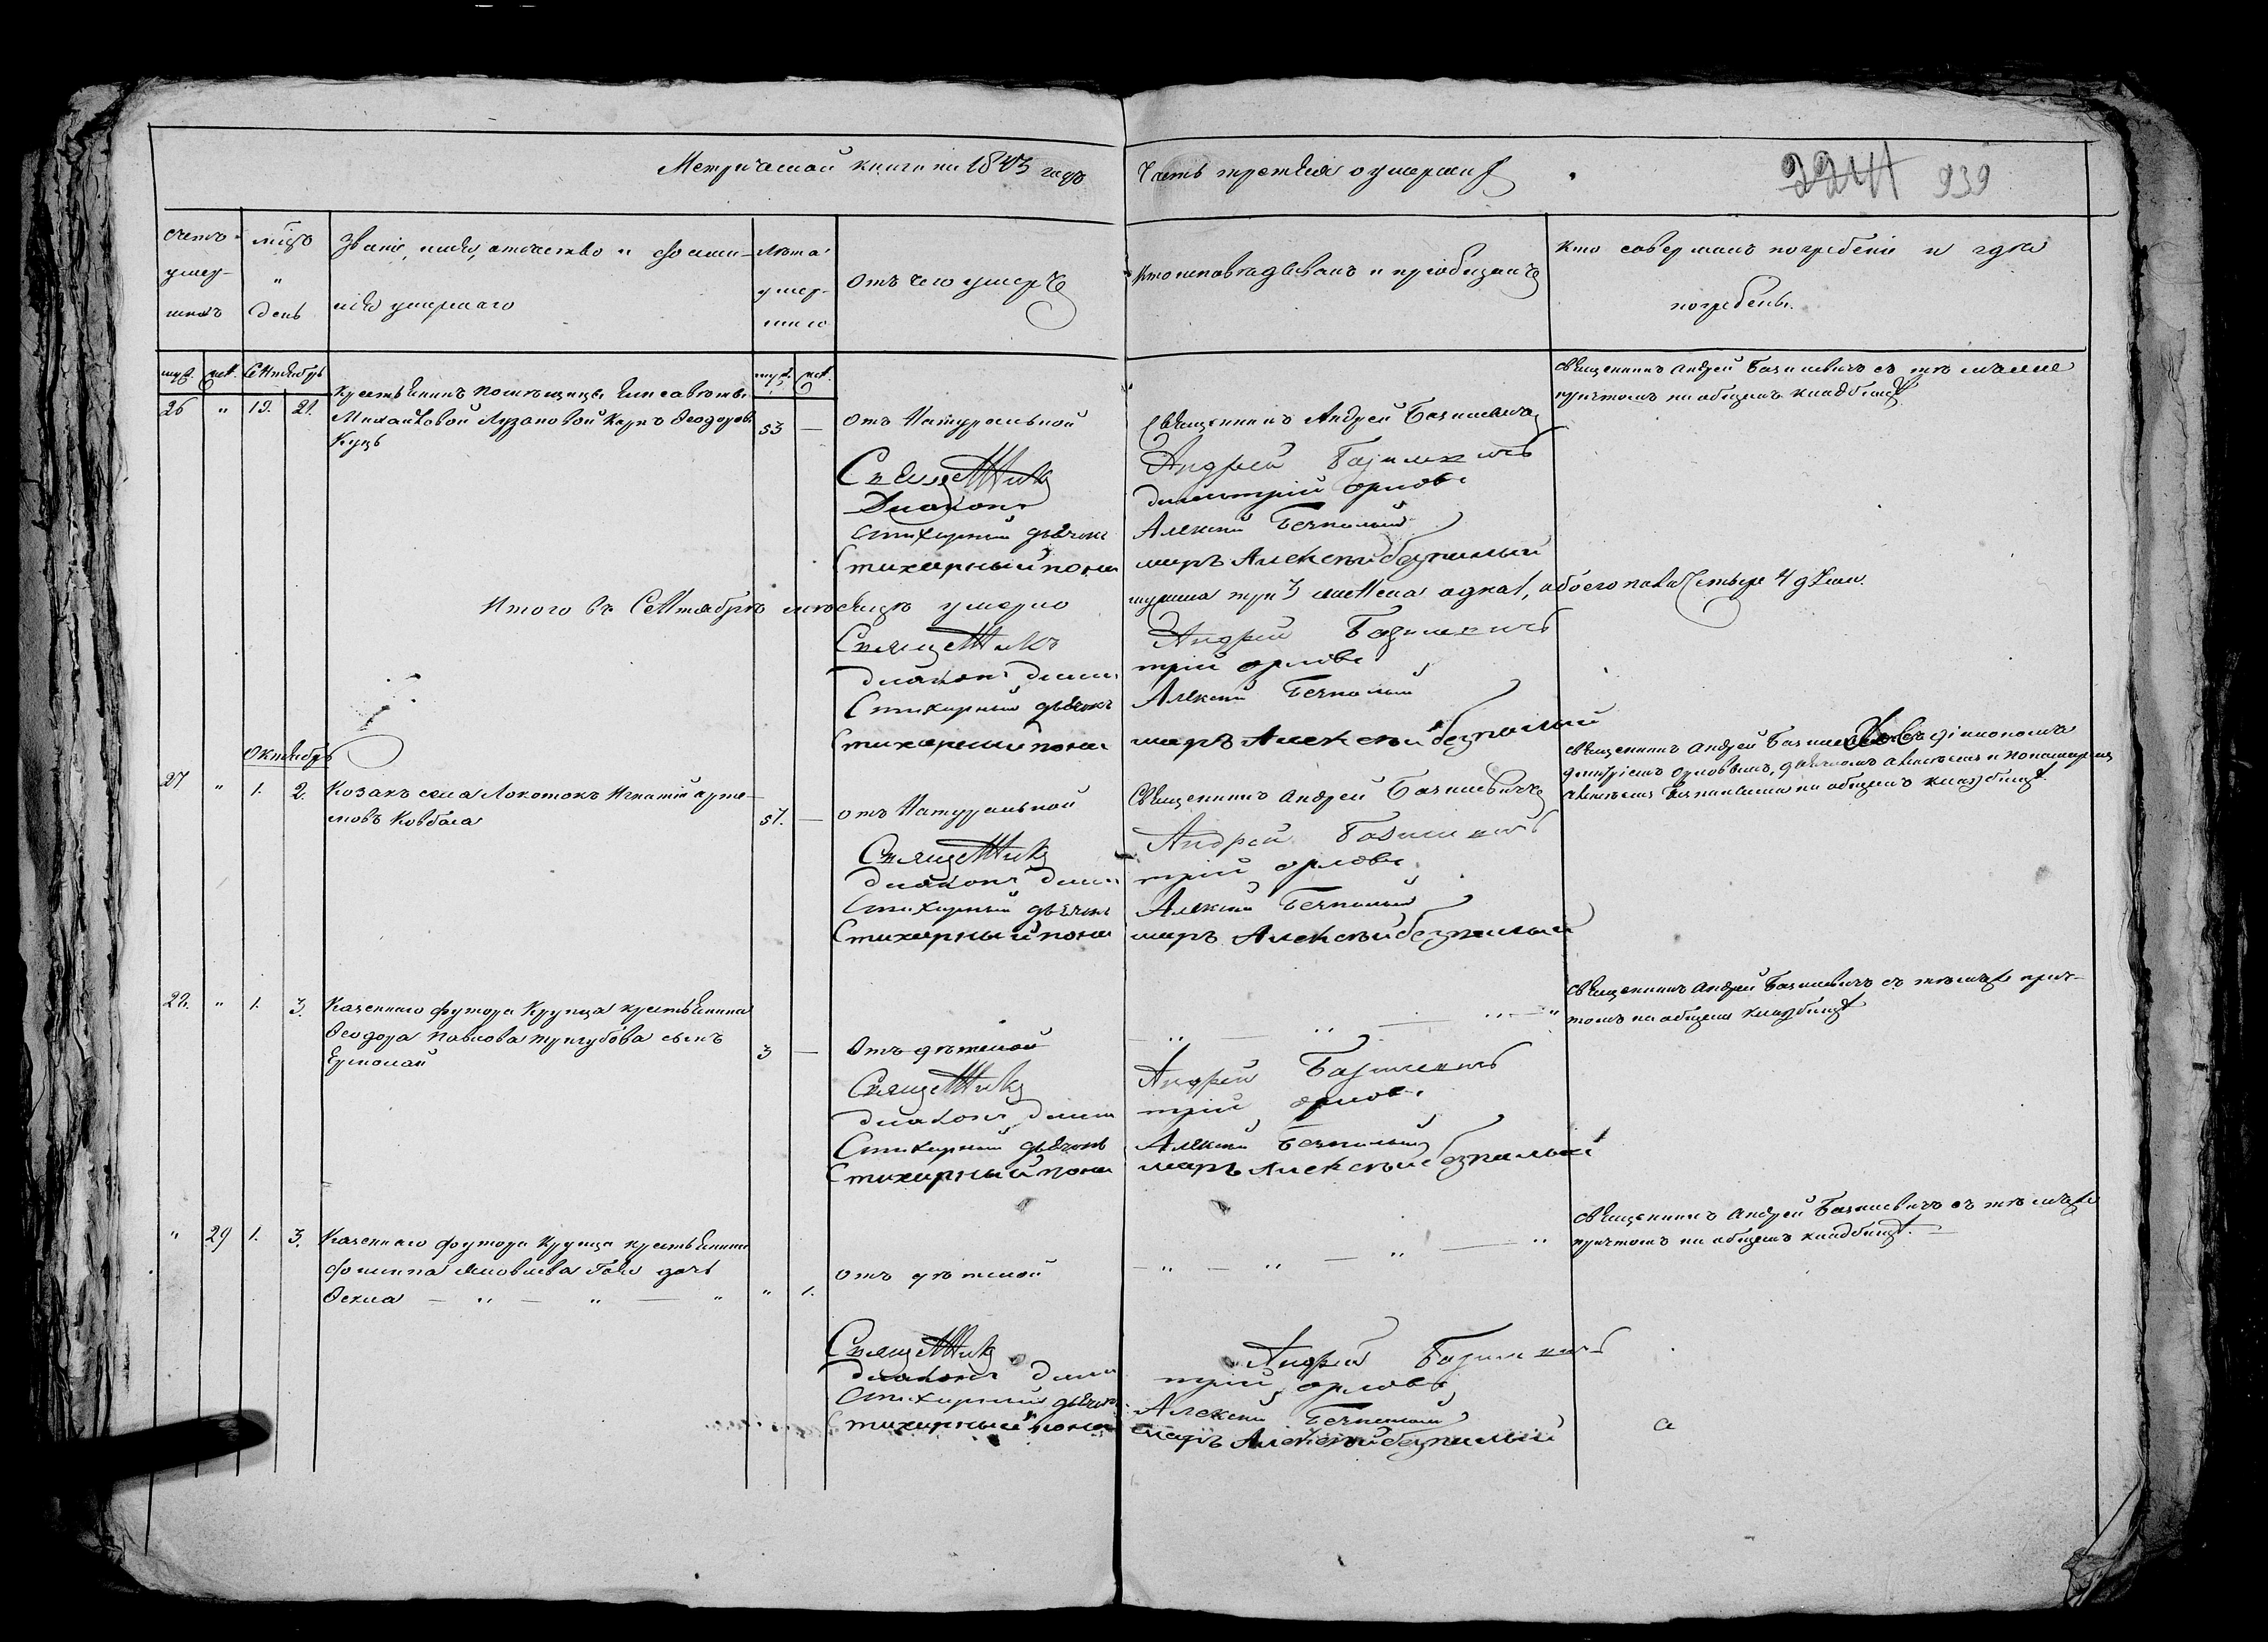 Метрической книги на 1843 годъ Часть третія о умершихъ
224 939
счетъ умер-шихъ
мѣсяцъ и день
Званіе, имя, отчество и фами-
лія умершаго
Лѣта умер-шаго
Отъ чего умеръ
Кто исповѣдывалъ и пріобщалъ
Кто совершалъ погребеніе и гдѣ
погребены.
муж. жен. Сентябрь
муж. жен.
26 " 19. 21.
Крестьянинъ помѣщицы Елисаветы
Михайловой Лузановой Карпъ Ѳеодоровъ
Куцъ
53 —
Отъ Натуральной
Священникъ Андрей Базилевичъ
Священникъ Андрей Базилевичъ съ тѣмъ же
причтомъ на общемъ кладбищѣ
Священникъ Андрей Базилевичъ
Диаконъ Димитрій Орловъ
Стихарный дьячокъ Алексѣй Безпалый
Стихарный пономарь Алексѣй Безпалый
Итого въ Сентябрѣ мѣсяцѣ умерло мужеска три 3 женска одна 1, обоего пола четыре 4 душъ.
Священникъ Андрей Базилевичъ
диаконъ Димитрій Орловъ
Стихарный дьячокъ Алексѣй Безпалый
Стихарный пономарь Алексѣй Безпалый
Октябрь
27 " 1. 2.
Козакъ села Локотокъ Игнатій Арте-
мовъ Ковбаса
51. —
отъ Натуральной
Священникъ Андрей Базилевичъ
Священникъ Андрей Базилевичъ съ діакономъ
Димитріемъ Орловымъ, дьячкомъ Алексѣемъ и Пономаремъ
Алексѣемъ Безпалыми на общемъ кладбищѣ
Священникъ Андрей Базилевичъ
диаконъ Димитрій Орловъ
Стихарный дьячокъ Алексѣй Безпалый
Стихарный пономарь Алексѣй Безпалый
28. " 1. 3.
Казеннаго футора Крупца крестьянина
Ѳеодора Павлова Тригубова сынъ
Ермолай
3 —
Отъ дѣтской
Священникъ Андрей Базилевичъ съ тѣмъ же прич-
томъ на общемъ кладбищѣ
Священникъ Андрей Базилевичъ
диаконъ Димитрій Орловъ
Стихарный дьячокъ Алексѣй Безпалый
Стихарный пономарь Алексѣй Безпалый
" 29 1. 3.
Казеннаго футора Крупца крестьянина
Филиппа Яковлева дочь
Ѳекла
" 1.
отъ дѣтской
Священникъ Андрей Базилевичъ съ тѣмъ же
причтомъ на общемъ кладбищѣ.
Священникъ Андрей Базилевичъ
диаконъ Димитрій Орловъ
Стихарный дьячокъ Алексѣй Безпалый
Стихарный пономарь Алексѣй Безпалый